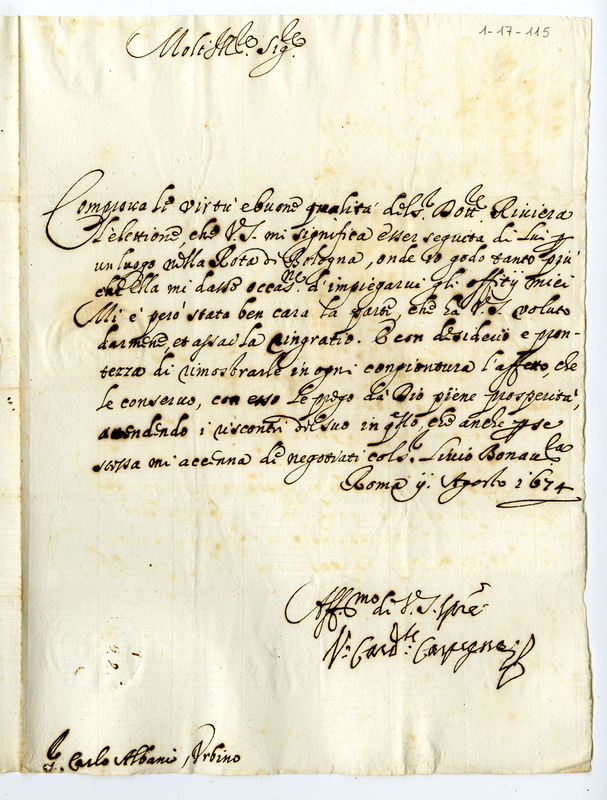 1-17-115
Molt Ill.re Sig.re
Comprova le virtù e buone qualità del S.r Dott.re Riviera
l'elettione, che V.S. mi significa esser seguita di Lui p
un luogo nella Rota di Bologna, onde io godo tanto più
che ella mi dasse occas.ne d'impiegarvi gli offitij miei
Mi è però stata ben cara la parte, che hà V.S. voluto
darmene, et assai la ringratio. E con desiderio e pron-
tezza di rimostrarle in ogni congiontura l'affetto, che
le conservo, con esso le prego da Dio piene prosperità,
attendendo i riscontri del suo in q.sto, che anche p se
stessa mi accenna de negotiati col S. Livio Bonav.la
Roma ij. Agosto 1674
Aff.mo di V.S. Ser.re
Card.le Carpegna
S. Carlo Albani, Urbino